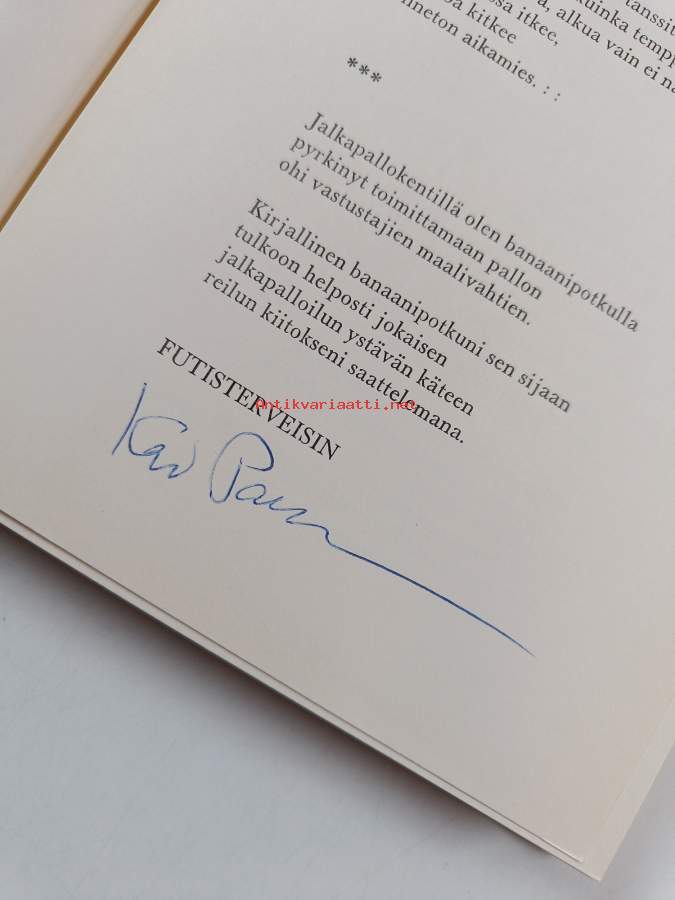 tanssit
kuinka temp
ssa itkee, alkua vain ei nä
kitkee
nneton aikamies. : :
***
Jalkapallokentillä olen banaanipotkulla
pyrkinyt toimittamaan pallon
ohi vastustajien maalivahtien.
Kirjallinen banaanipotkuni sen sijaan
tulkoon helposti jokaisen
jalkapalloilun ystävän käteen
reilun kiitokseni saattelemana.
FUTISTERVEISIN
Antikvariaatti.net